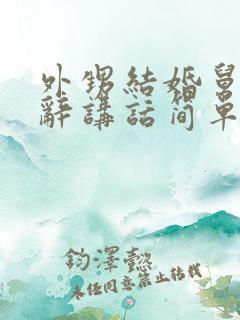 外甥結婚舅
辭講話簡單
鈞澤懿
未经同意禁止转载